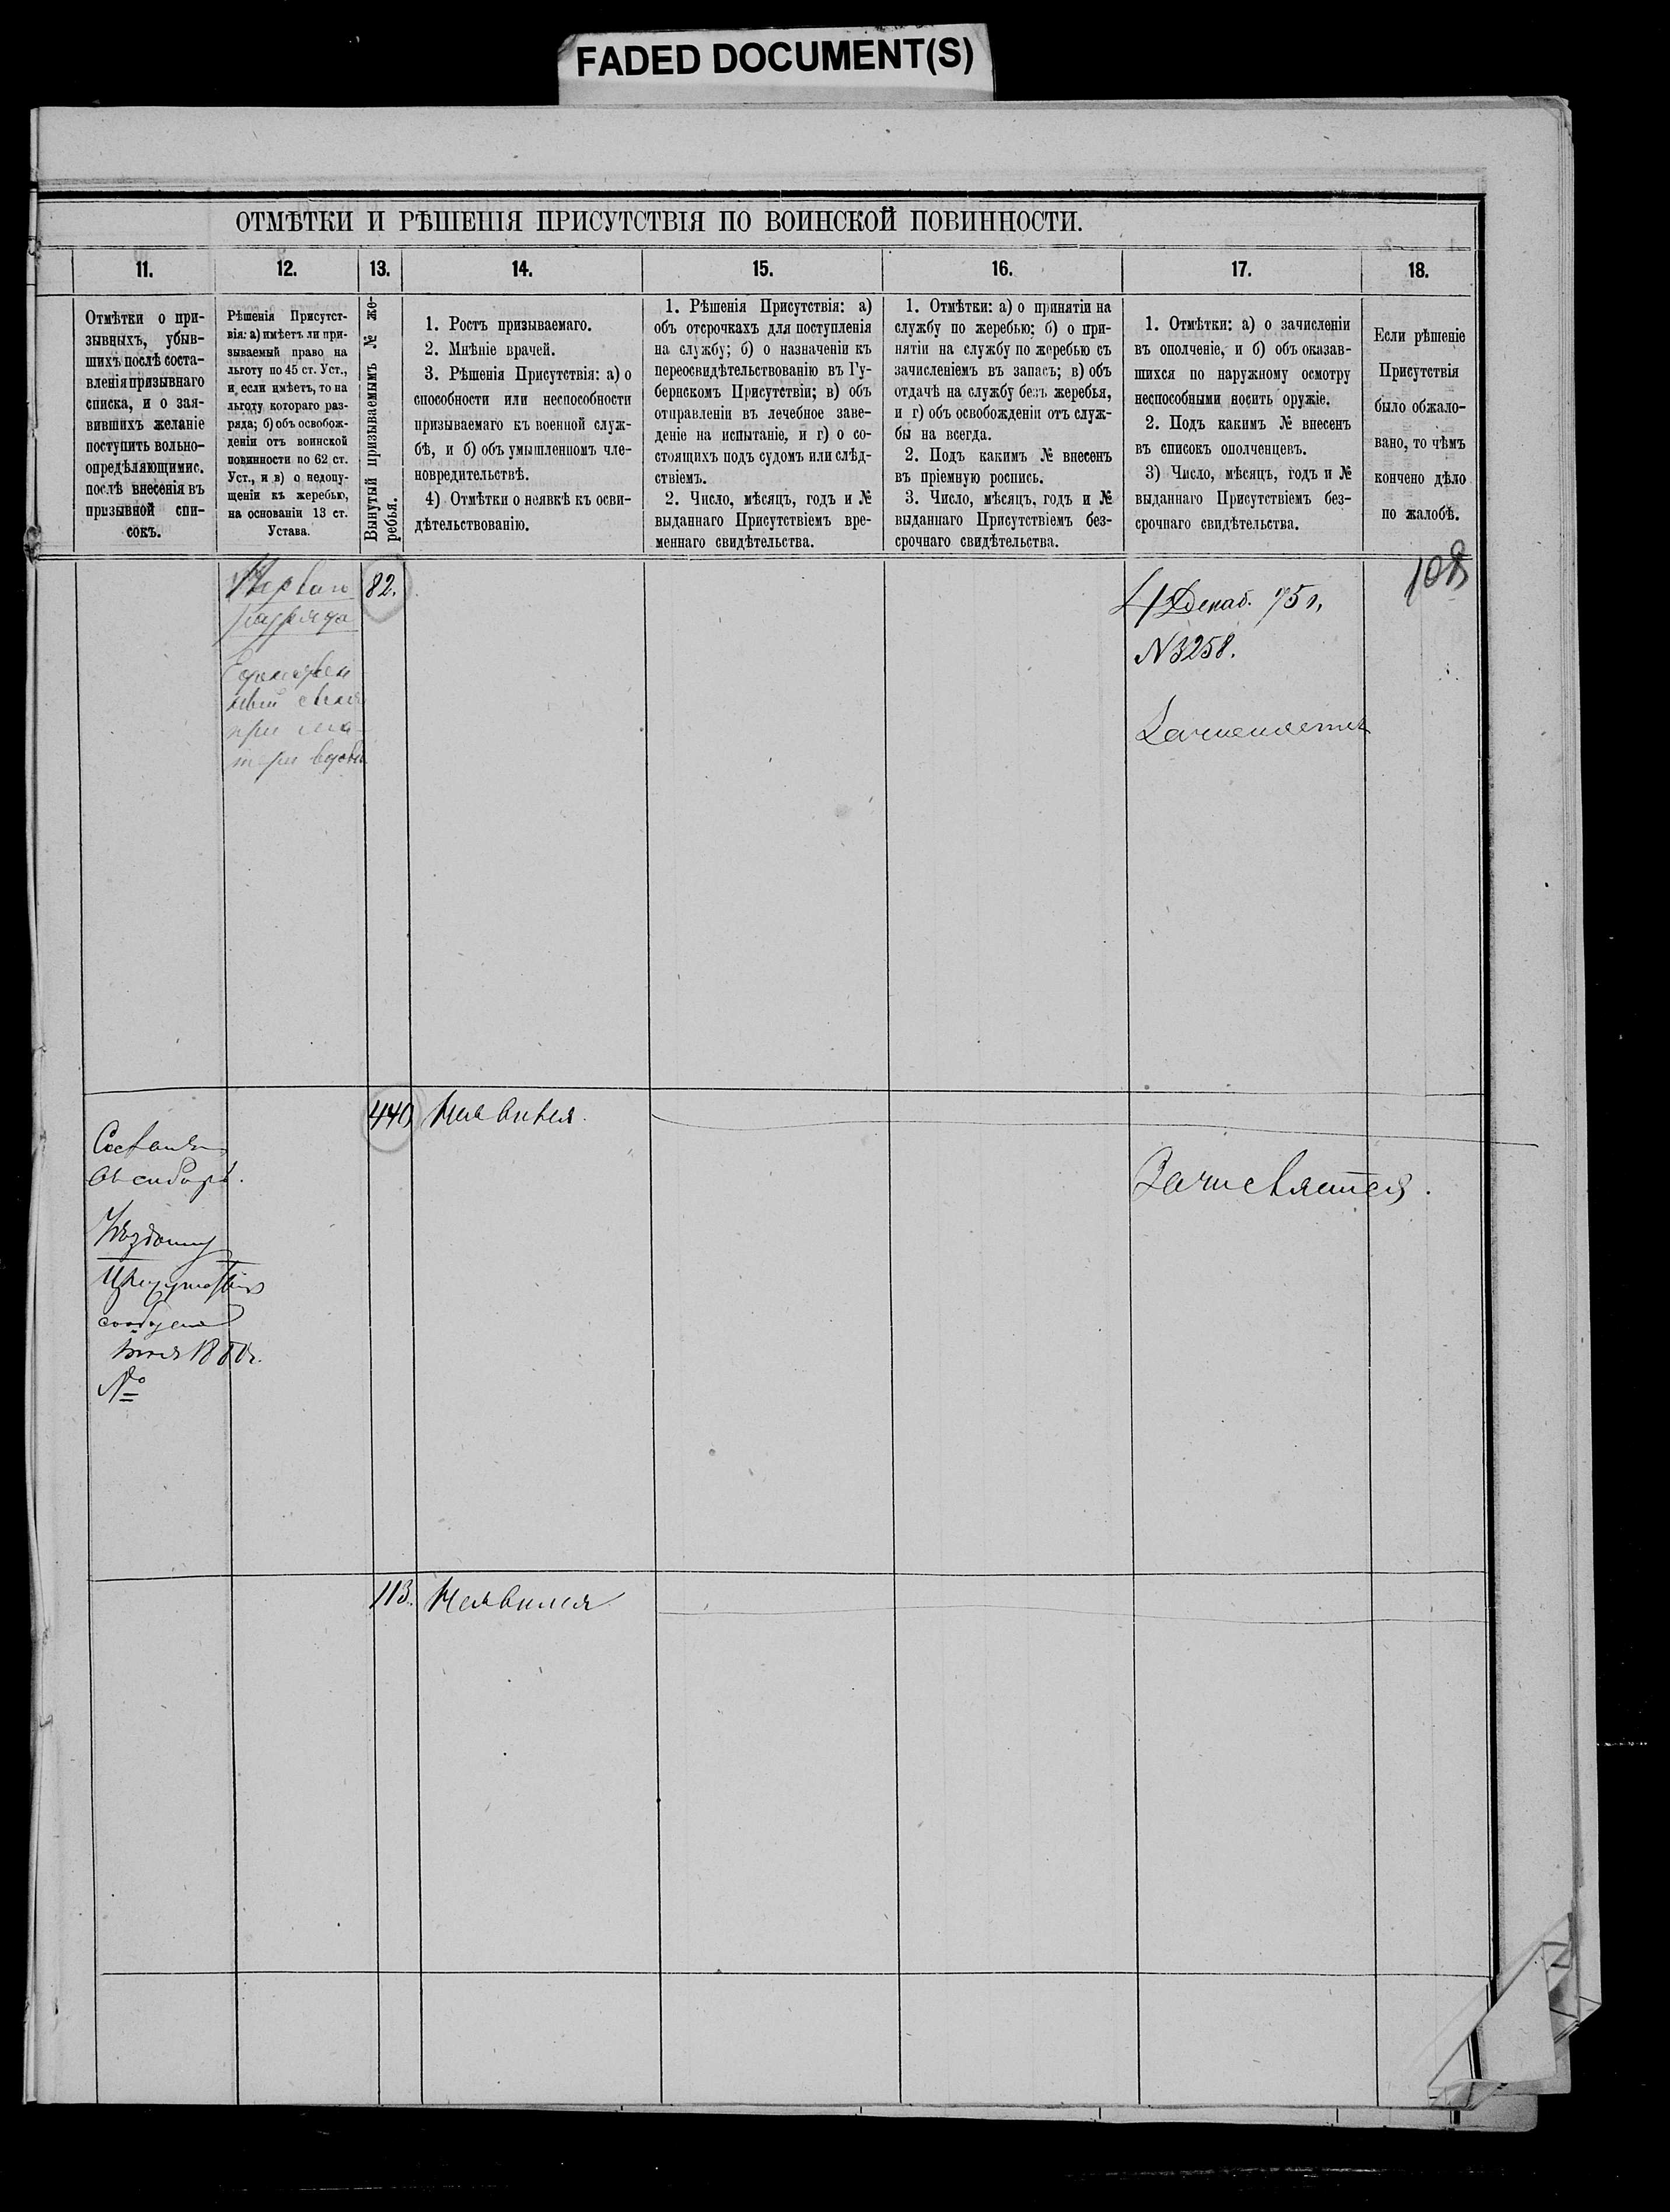 FADED DOCUMENT(S)
ОТМѢТКИ И РѢШЕНІЯ ПРИСУТСТВІЯ ПО ВОИНСКОЙ ПОВИННОСТИ.
11.
12.
13.
14.
15.
16.
17.
18.
Отмѣтки о при-
зывныхъ, убыв-
шихъ послѣ соста-
вленія призывнаго
списка, и о зая-
вившихъ желаніе
поступить вольно-
опредѣляющимис.
послѣ внесенія въ
призывной спи-
сокъ.
Рѣшенія Присутст-
вія: а) имѣетъ ли при-
зываемый право на
льготу по 45 ст. Уст.,
и, если имѣетъ, то на
льготу котораго раз-
ряда; б) объ освобож-
деніи отъ воинской
повинности по 62 ст.
Уст., и в) о недопу-
щеніи къ жеребью,
на основаніи 13 ст.
Устава.
Вынутый призываемымъ № же-
ребья.
1. Ростъ призываемаго.
2. Мнѣніе врачей.
3. Рѣшенія Присутствія: а) о
способности или неспособности
призываемаго къ военной служ-
бѣ, и б) объ умышленномъ чле-
новредительствѣ.
4) Отмѣтки о неявкѣ къ осви-
дѣтельствованію.
1. Рѣшенія Присутствія: а)
объ отсрочкахъ для поступленія
на службу; б) о назначеніи къ
переосвидѣтельствованію въ Гу-
бернскомъ Присутствіи; в) объ
отправленіи въ лечебное заве-
деніе на испытаніе, и г) о со-
стоящихъ подъ судомъ или слѣд-
ствіемъ.
2. Число, мѣсяцъ, годъ и №
выданнаго Присутствіемъ вре-
меннаго свидѣтельства.
1. Отмѣтки: а) о принятіи на
службу по жеребью; б) о при-
нятіи на службу по жеребью съ
зачисленіемъ въ запасъ; в) объ
отдачѣ на службу безъ жеребья,
и г) объ освобожденіи отъ служ-
бы на всегда.
2. Подъ какимъ № внесенъ
въ пріемную роспись.
3. Число, мѣсяцъ, годъ и №
выданнаго Присутствіемъ без-
срочнаго свидѣтельства.
1. Отмѣтки: а) о зачисленіи
въ ополченіе, и б) объ оказав-
шихся по наружному осмотру
неспособными носить оружіе.
2. Подъ какимъ № внесенъ
въ списокъ ополченцевъ.
3) Число, мѣсяцъ, годъ и №
выданнаго Присутствіемъ без-
срочнаго свидѣтельства.
Если рѣшеніе
Присутствія
было обжало-
вано, то чѣмъ
кончено дѣло
по жалобѣ.
108
Перваго
разряда
82.
4 Декаб. 75 г.
N 3258.
Единствен
ный сынъ
при ма-
тери вдовѣ
Зачисляется
440
Неявился.
Зачисляется.
Уѣздному
Присутствію
1880г.
№
113.
Неявился